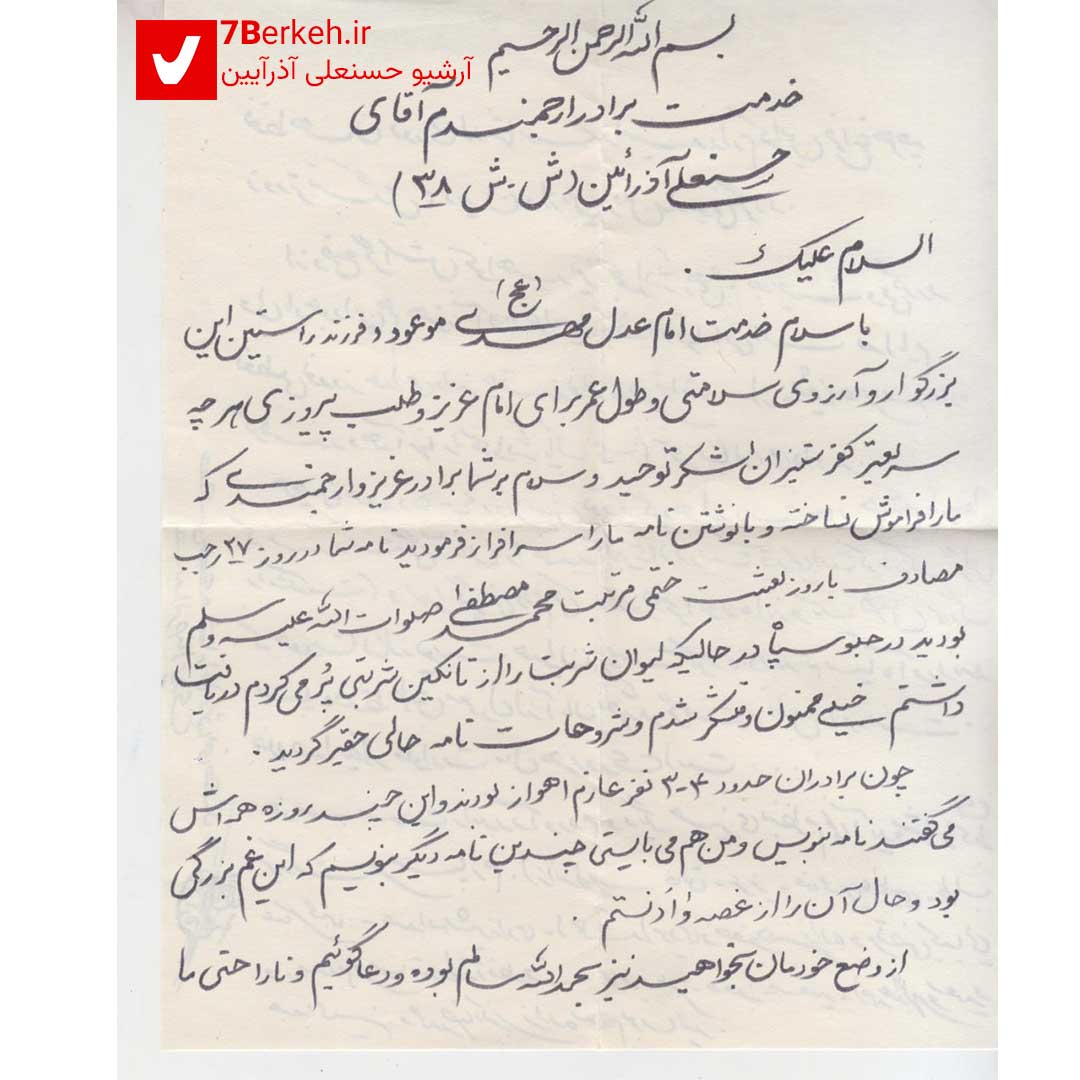 7Berkeh.ir
آرشیو حسنعلی آذرآیین
بسم الله الرحمن الرحیم
خدمت برادر ارجمندم آقای
حسنعلی آذرآئین (ش.ش ۳۸)
السلام علیک.
با سلام خدمت امام عدل مهدی (عج) موعود و فرزند راستین این
بزرگوار و آرزوی سلامتی و طول عمر برای امام عزیز و طلب پیروزی هر چه
سریعتر کفر ستیزان لشکر توحید و سلام بر شما برادر عزیز و ارجمندی که
ما را فراموش نساخته و با نوشتن نامه ما را سرافراز فرمودید نامه شما در روز ۲۷ رجب
مصادف با روز بعثت ختمی مرتبت محمد مصطفی صلوات الله علیه و سلم
بودید در جلو سپاه در حالیکه لیوان شربت را از تانکین شربتی پُر می کردم دریافت
داشتم خیلی ممنون و متشکر شدم و نامه حالی حقیر گردید.
چون برادران حدود ۴-۳ نفر عازم اهواز بودند و این چند روزه همه اش
می گفتند نامه بنویس و من هم می بایستی چندین نامه دیگر بنویسم که این غم بزرگی
بود و حال آن را از غصه وا دانستم.
از وضع خودمان بخواهید نیز بحمدالله سالم بوده و دعاگوئیم و ناراحتی ما